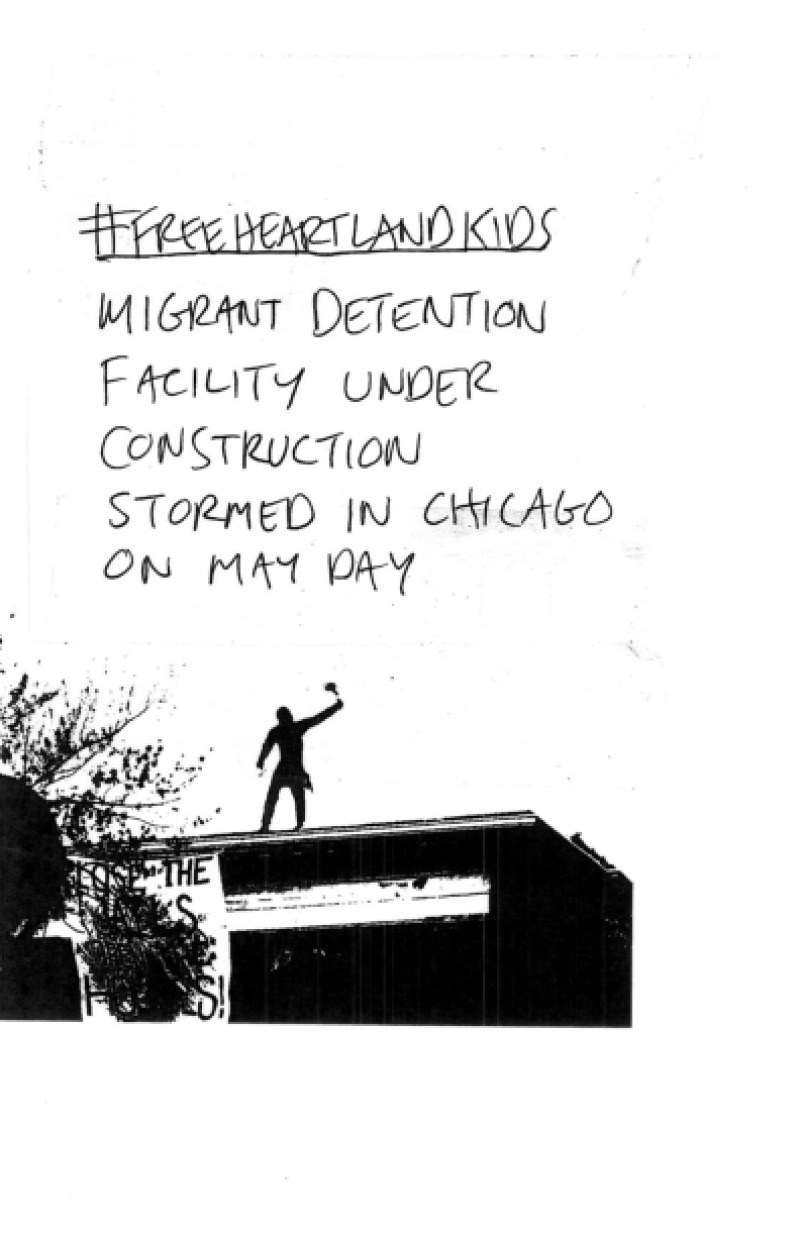 #FREEHEARTLANDKIDS
MIGRANT DETENTION
FACILITY UNDER
CONSTRUCTION
STORMED IN CHICAGO
ON MAY DAY
THE